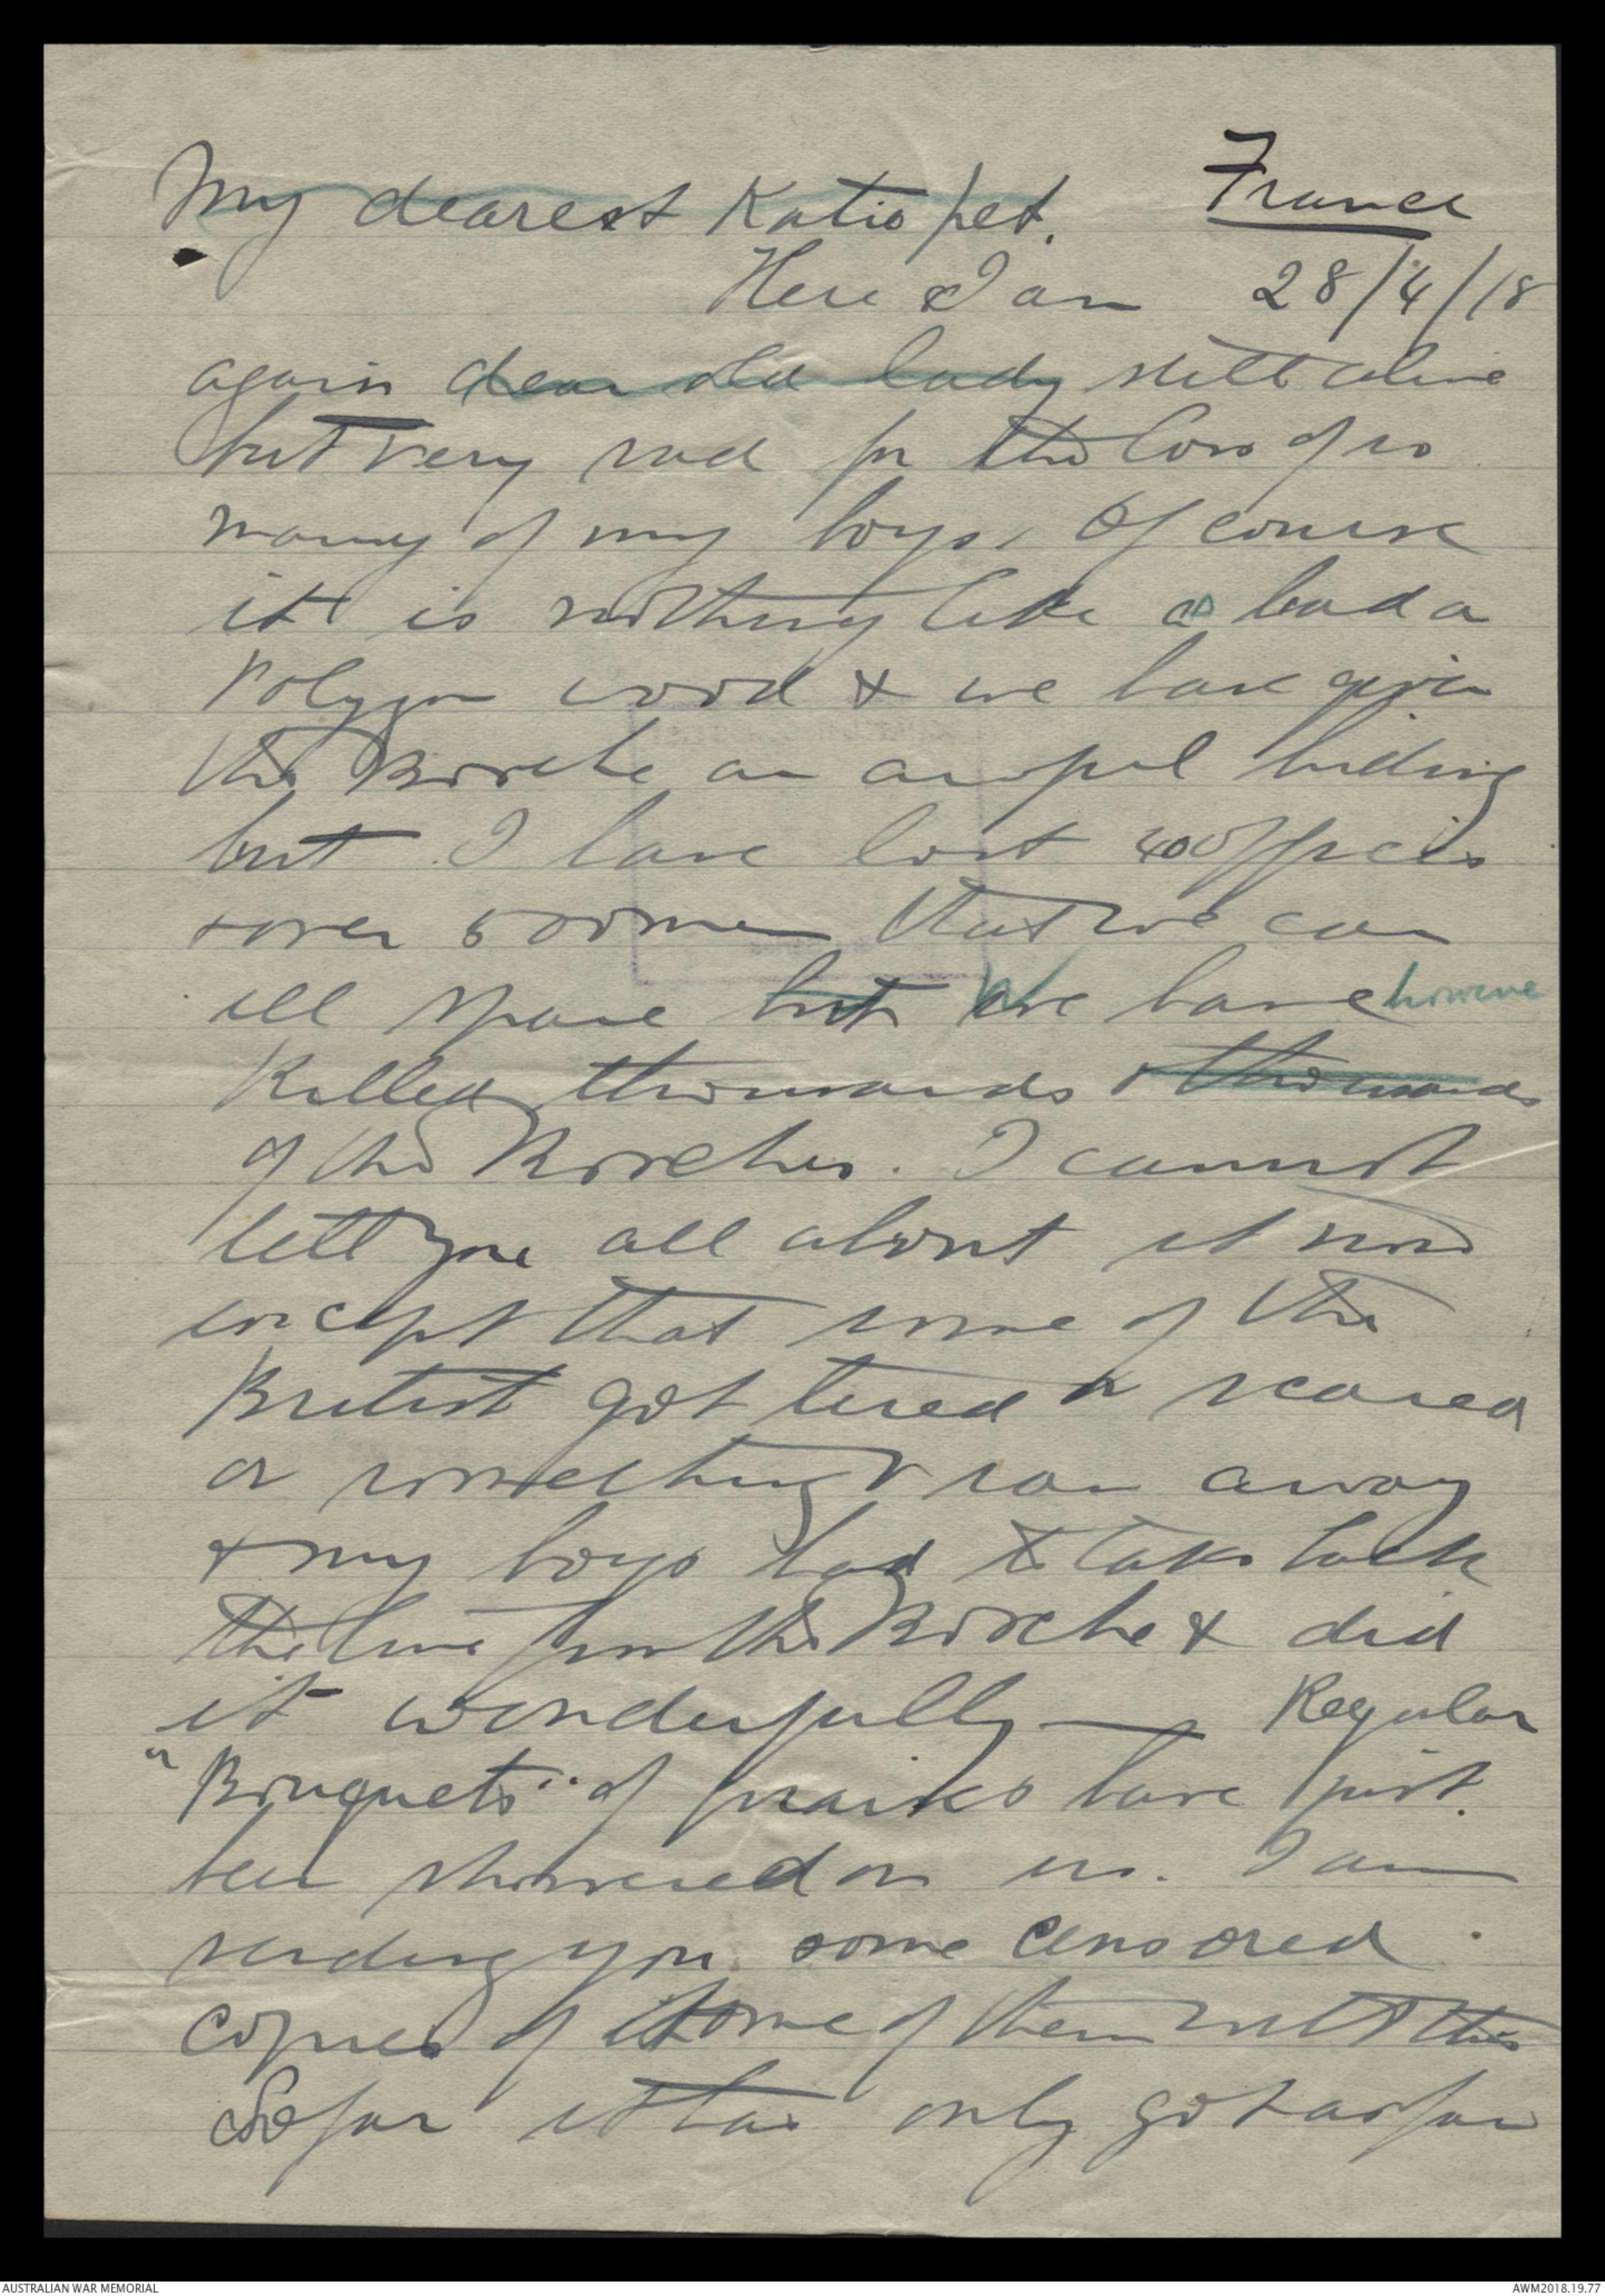 My dearest Katie pet. France
Here I am 28/4/18
again dear old lady still alive
but very sad for the loss of so
many of my boys. Of course
it is nothing like as bad a
Polygon wood & we have given
the Bosche an awful hiding
but I have lost 40 officers
& over 500 men that we can
ill spare but We have however
killed thousands & thousands
of the Bosches. I cannot
tell you all about it now
except that some of the
British got tired or scared
or something & ran away
& my boys had to take back
the line from the Bosche & did
it wonderfully — Regular
"Bouquets" of praises have just
been showered on us. I am
sending you some censored
copies of some of them with this
So far it has only got as far
AUSTRALIAN WAR MEMORIAL AWM2018.19.77